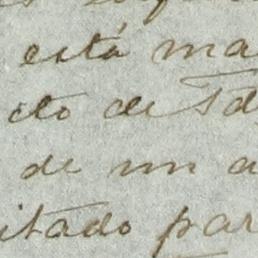 está ma
cto de
de un a
itado par